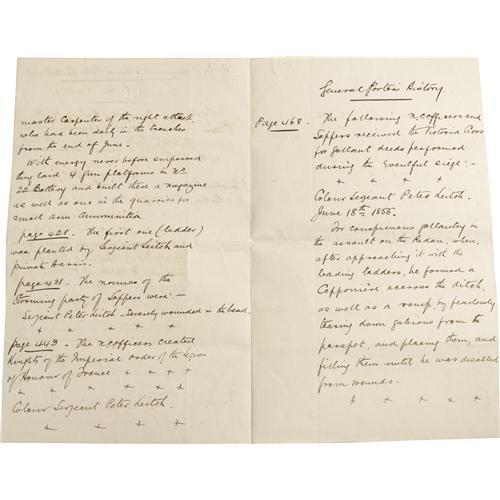 master Carpenter of the right attack
who had been daily in the trenches
from the end of June.
With energy never before surpassed
they laid 4 Gun platforms in No
22 Battery and built there a magazine
as well as one in the quarries for
small arm Ammunition
page 428. The first one (ladder)
was planted by Sergeant Leitch and
private Harris.
page 431. The names of the
Storming party of Sappers were:-
Sergeant Peter Leitch - Severely wounded in the hand.
+ + + + +
page 443. The n.c officers created
Knights of the Imperial order of the Legion
of Honour of France + + + +
+ + + + + +
Colour Sergeant Peter Leitch.
+ + + +
General Porter's History
Page 468. The following n.c officers and
Sappers received the Victoria Cross
for gallant deeds performed
during the Eventful Siege:-
+ + + +
Colour Sergeant Peter Leitch.
June 18th 1855.
For conspicuous gallantry in
the assault on the Redan, when,
after approaching it with the
leading ladders, he formed a
Capponiere accross the ditch,
as well as a ramp, by fearlessly
tearing down gabions from the
parapet, and placing them, and
filling them until he was disabled
from wounds.
+ + + + +